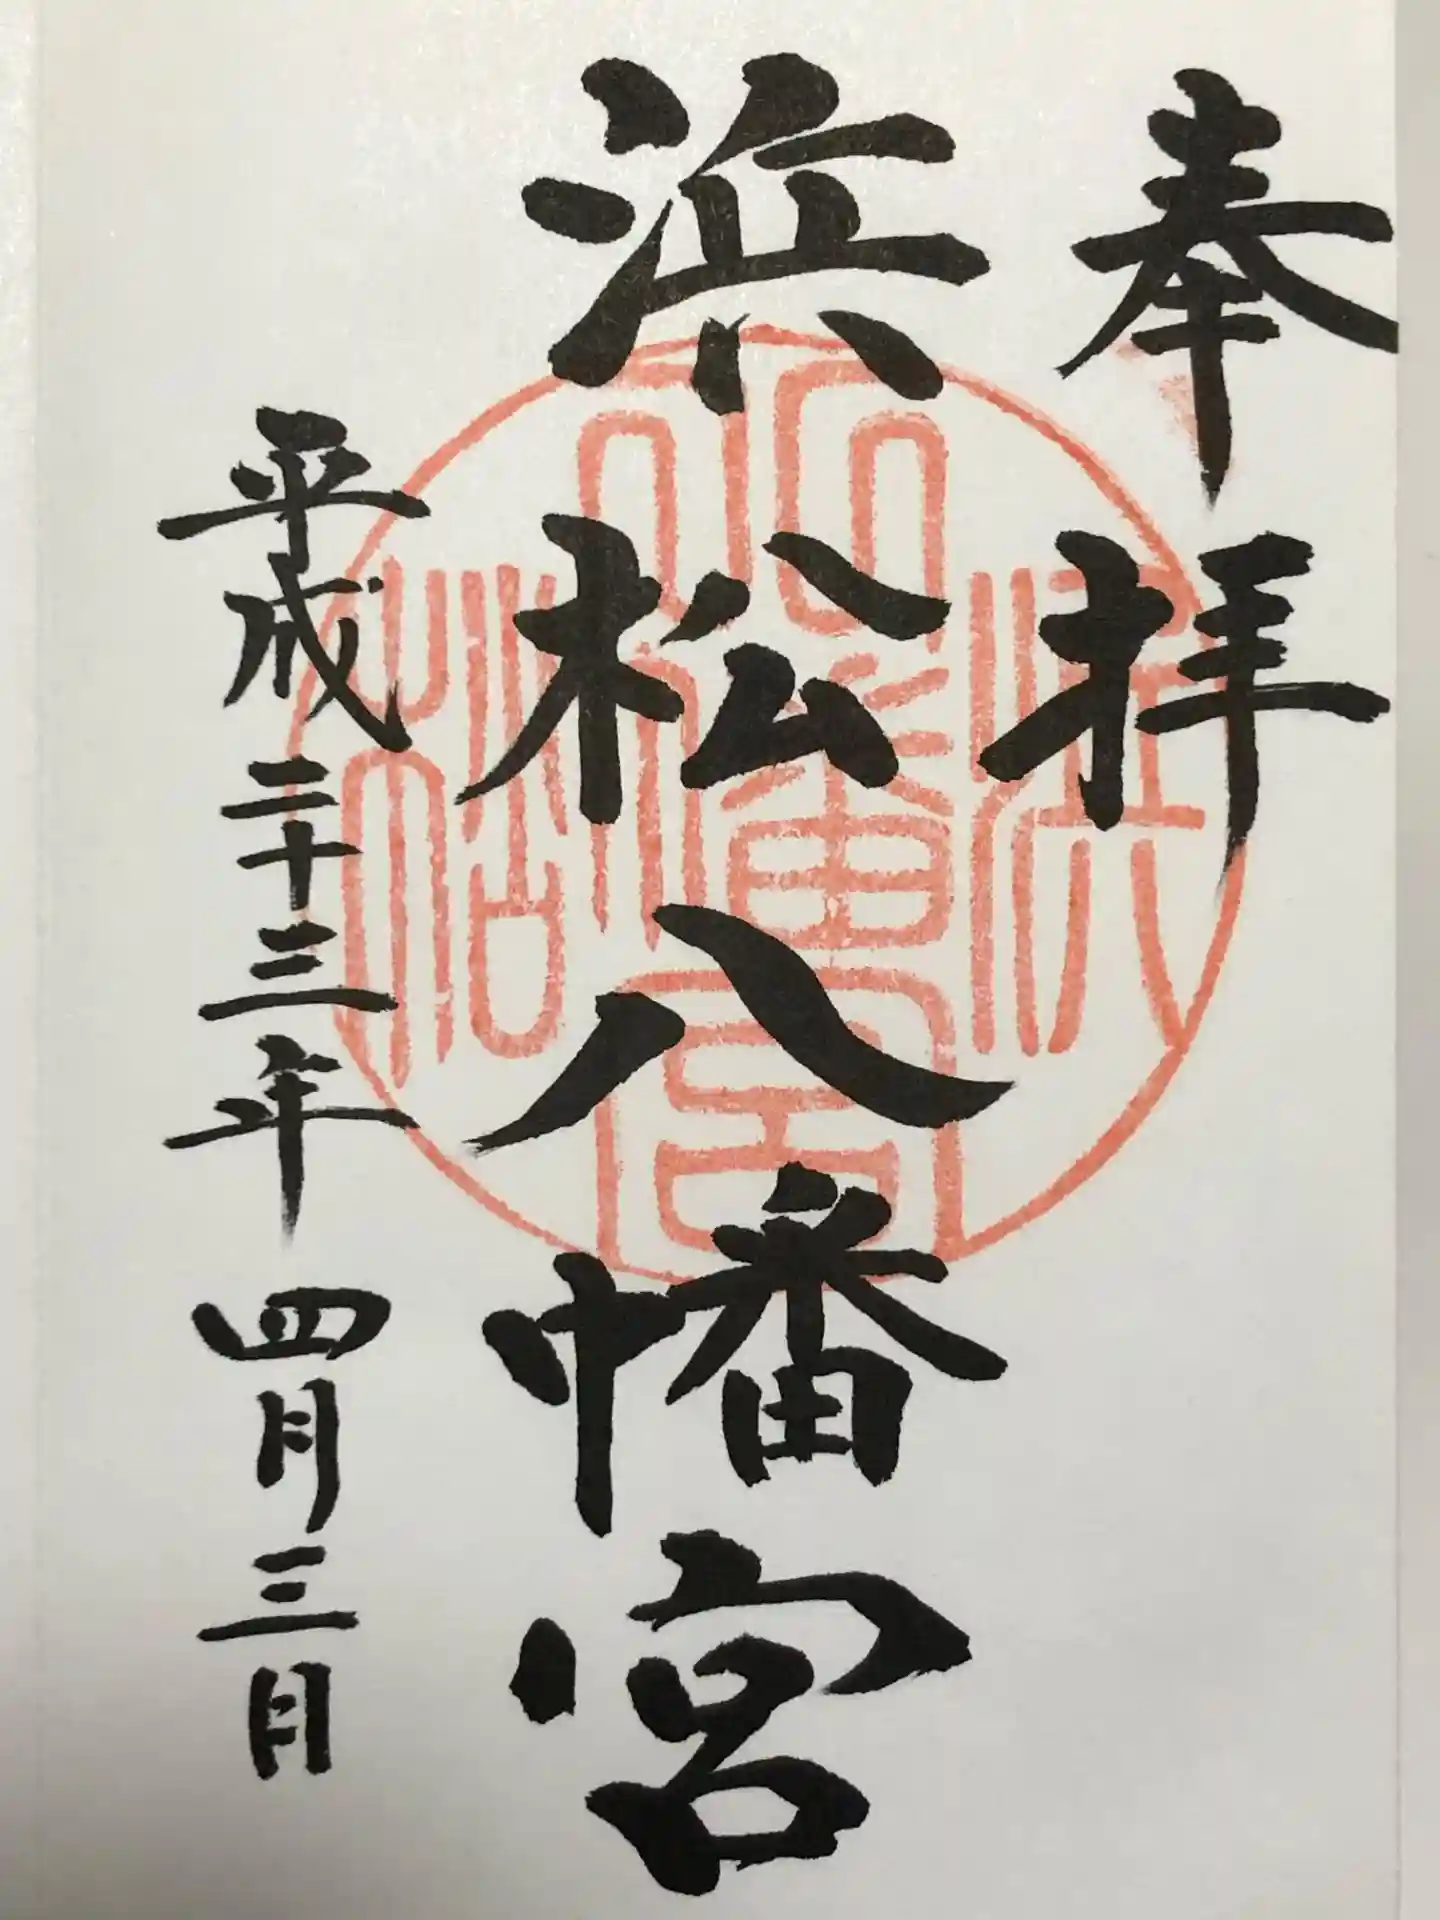 奉拝
浜松八幡宮
平成二十三年四月三日
浜松
八幡宮